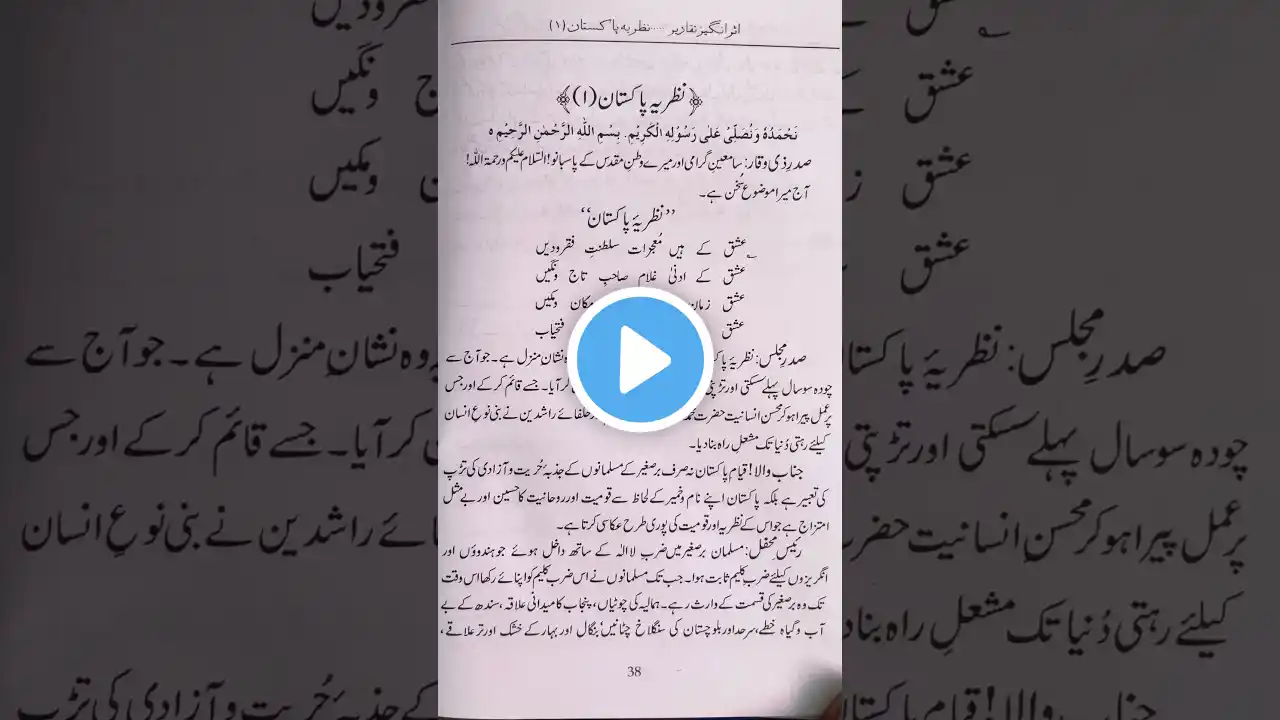 اثر انگیز تقاریر ..... نظریہ پاکستان (۱)
﴿نظریہ پاکستان (۱)﴾
نَحْمَدُهٗ وَنُصَلِّیْ عَلٰی رَسُوْلِهِ الْکَرِیْمِ. بِسْمِ اللّٰهِ الرَّحْمٰنِ الرَّحِیْمِ ہ
صدرِ ذی وقار: سامعینِ گرامی اور میرے وطنِ مقدس کے پاسبانو! السّلام علیکم ورحمۃ اللہ!
آج میرا موضوعِ سُخن ہے۔
’’نظریۂ پاکستان‘‘
عشق کے ہیں مُعجزات سلطنتِ فقرودیں
عشق کے ادنیٰ غلام صاحبِ تاج ونگیں
عشق زمان مکان ومکیں
عشق فتحیاب
صدرِ مجلس: نظریۂ وہ نشانِ منزل ہے۔ جو آج سے
چودہ سو سال پہلے سسکتی اور تڑپتی کر آیا۔ جسے قائم کر کے اور جس
پر عمل پیرا ہو کر محسنِ انسانیت حضرت خلفائے راشدین نے بنی نوعِ انسان
کیلئے رہتی دُنیا تک مشعلِ راہ بنا دیا۔
جنابِ والا! قیامِ پاکستان نہ صرف برصغیر کے مسلمانوں کے جذبۂ حُریت و آزادی کی تڑپ
کی تعبیر ہے بلکہ پاکستان اپنے نام و ضمیر کے لحاظ سے قومیت اور روحانیت کا حسین اور بے مثل
امتزاج ہے جو اس کے نظریہ اور قومیت کی پوری طرح عکاسی کرتا ہے۔
رئیسِ محفل: مسلمان برصغیر میں ضربِ لا الٰہ کے ساتھ داخل ہوئے جو ہندوؤں اور
انگریزوں کیلئے ضربِ کلیم ثابت ہوا۔ جب تک مسلمانوں نے اس ضربِ کلیم کو اپنائے رکھا اس وقت
تک وہ برصغیر کی قسمت کے وارث رہے۔ ہمالیہ کی چوٹیاں، پنجاب کا میدانی علاقہ، سندھ کے بے
آب و گیاہ خطے، سرحد اور بلوچستان کی سنگلاخ چٹانیں، بنگال اور بہار کے خشک اور تر علاقے،
38